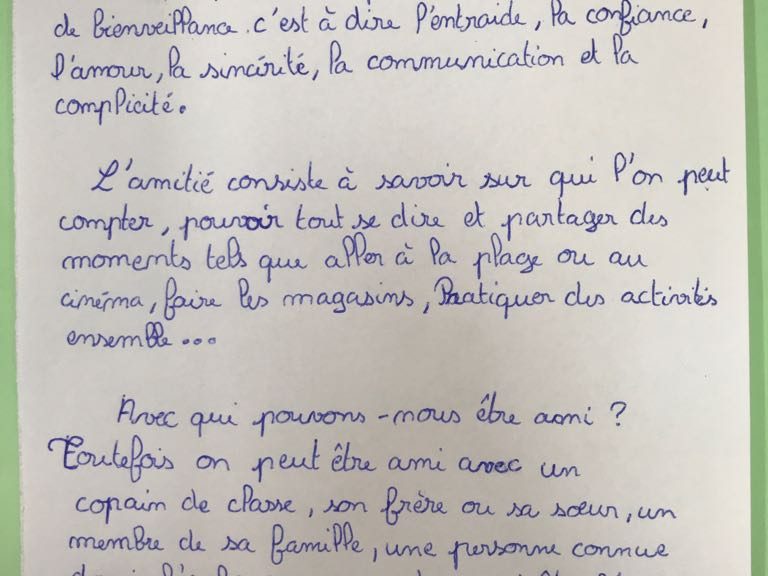 de bienveillance. c'est à dire l'entraide, la confiance,
l'amour, la sincérité, la communication et la
complicité.
L'amitié consiste à savoir sur qui l'on peut
compter, pouvoir tout se dire et partager des
moments tels que aller à la plage ou au
cinéma, faire les magasins, Pratiquer des activités
ensemble...
Avec qui pouvons-nous être ami ?
Toutefois on peut être ami avec un
copain de classe, son frère ou sa sœur, un
membre de sa famille, une personne connue